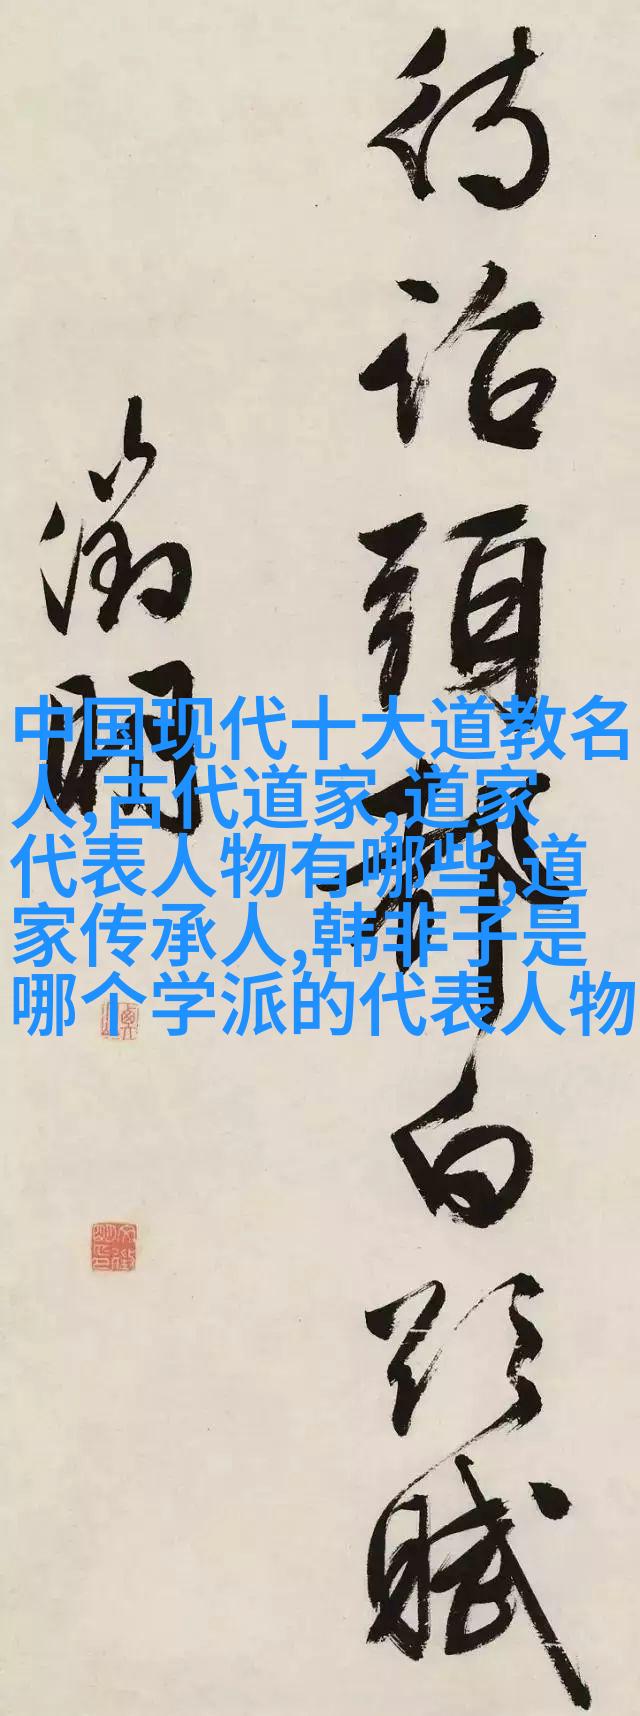 待诏頭都白欵賦
徵明
中国现代十大道教名
人,古代道家,道家
代表人物有哪些,道
家传承人,韩非子是
哪个学派的代表人物